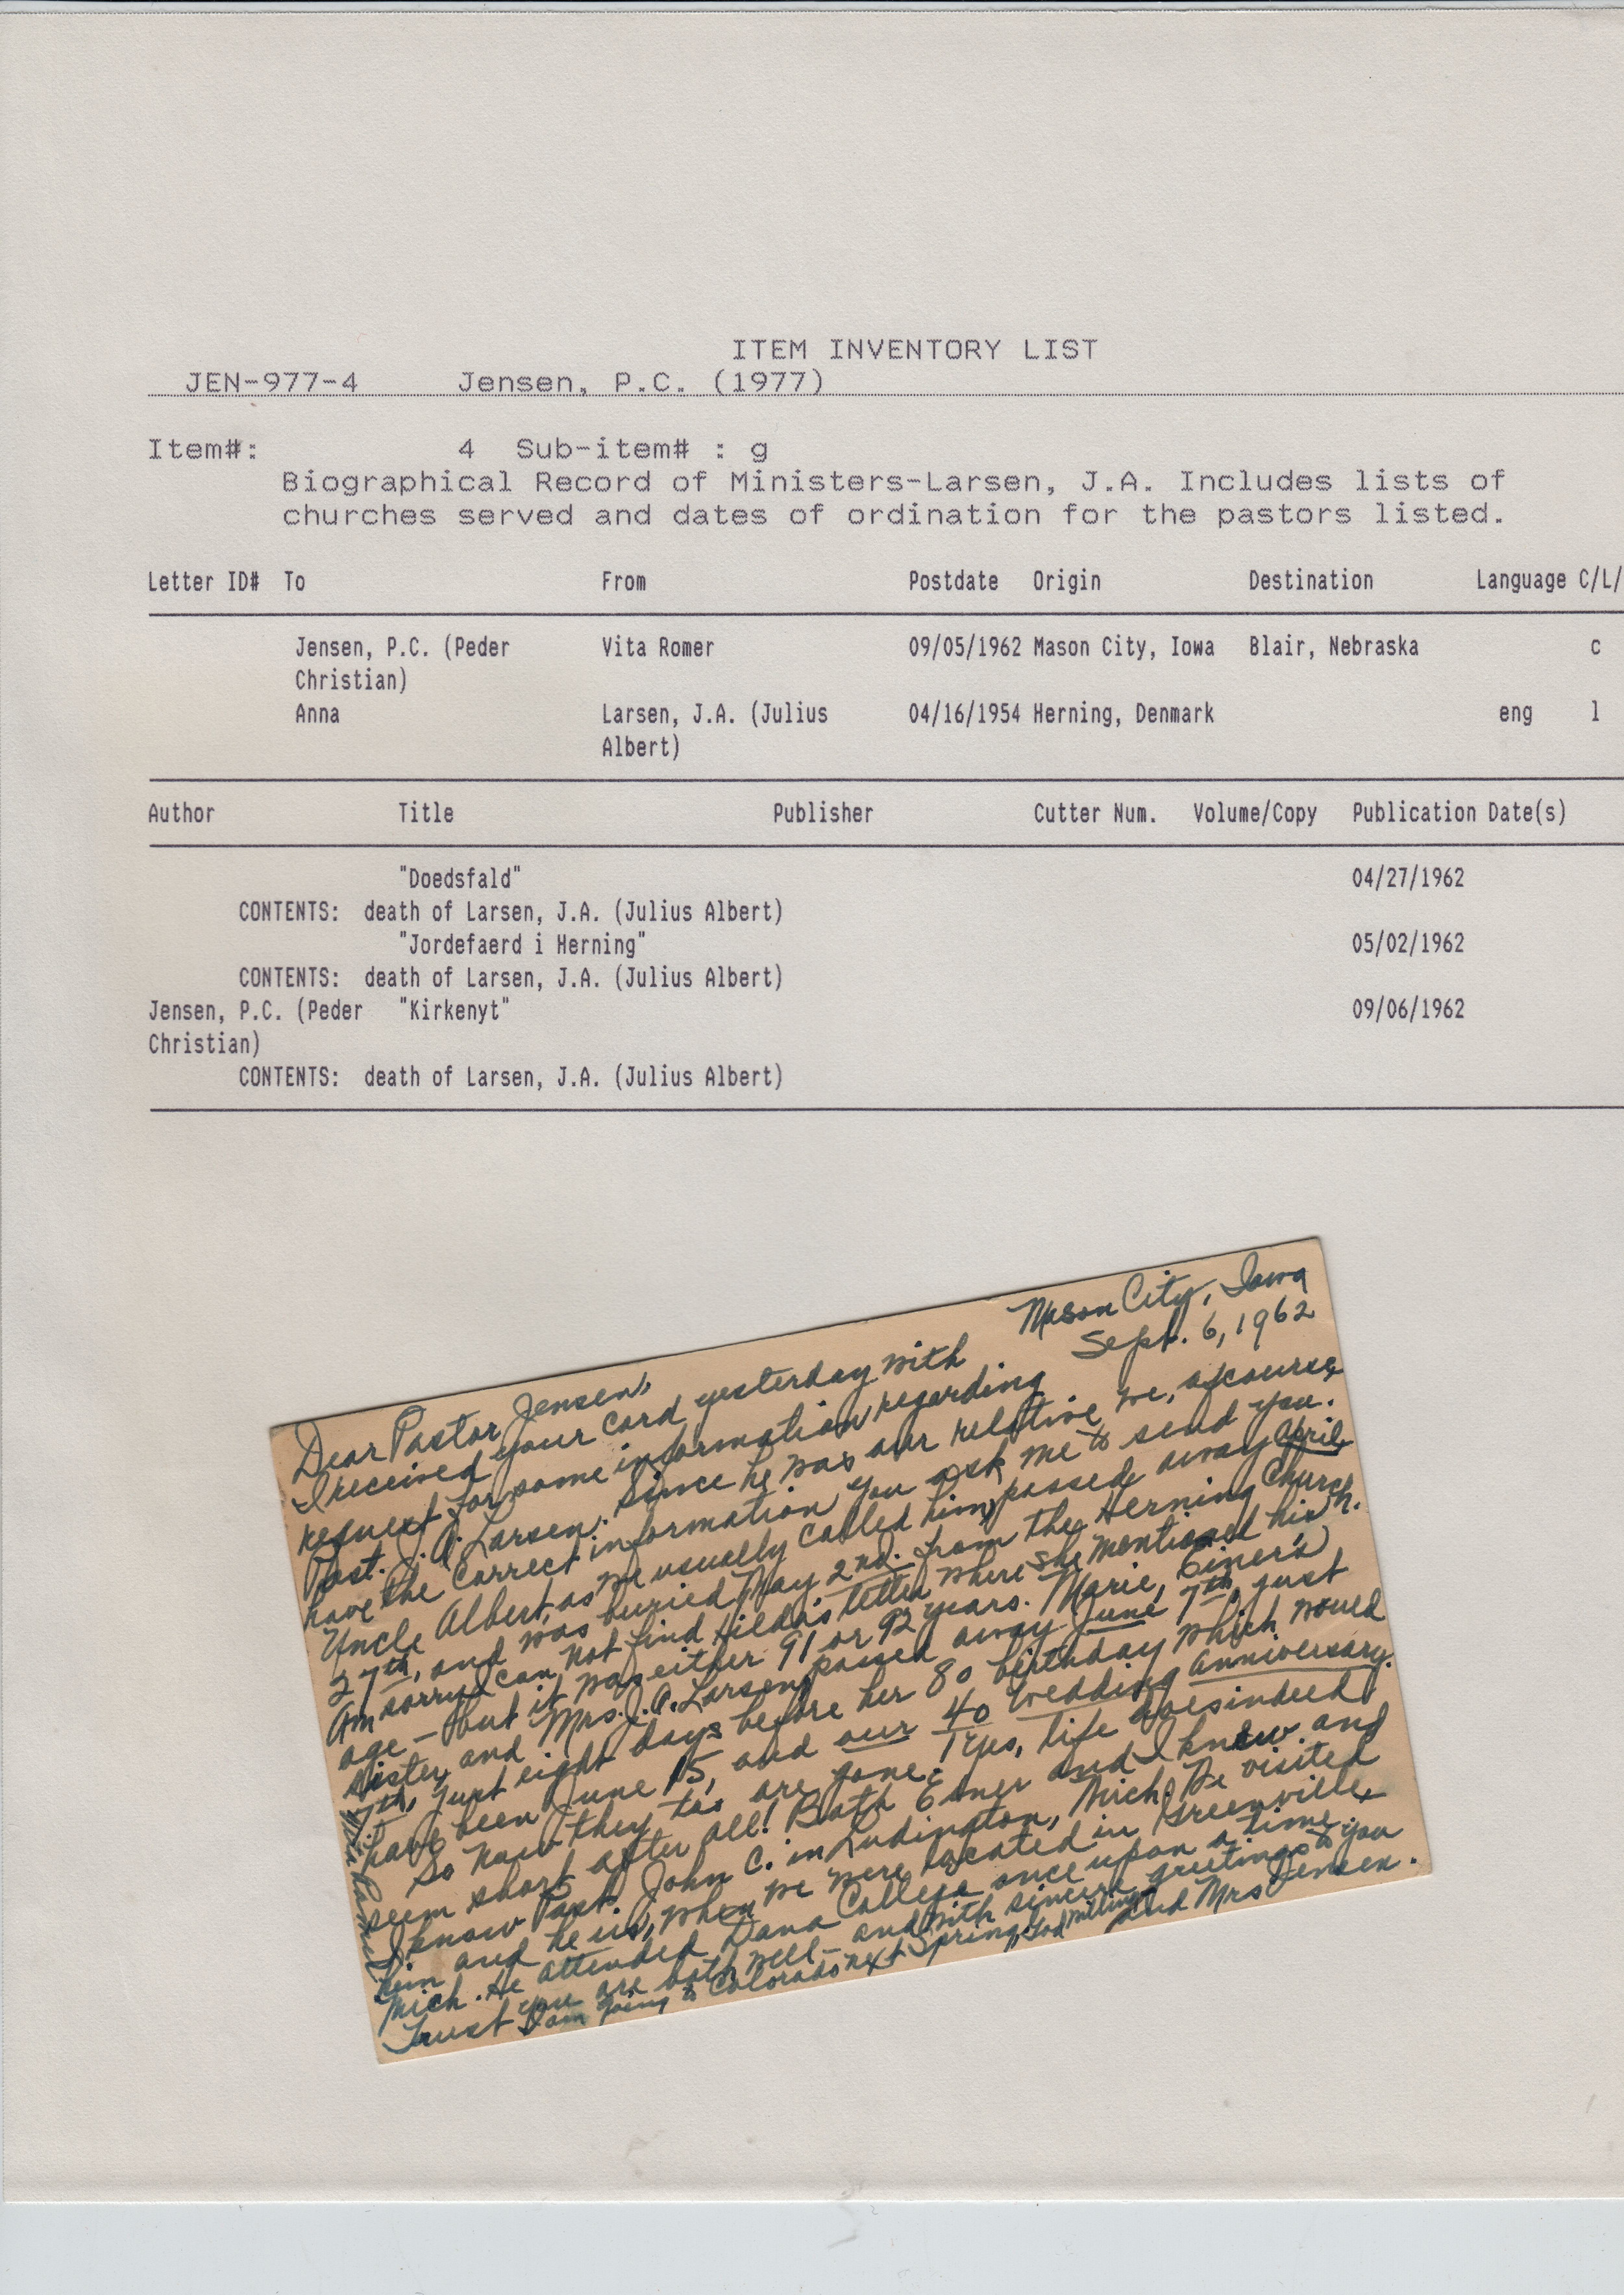 ITEM INVENTORY LIST
JEN-977-4 Jensen, P.C. (1977)
Item#: 4 Sub-item# : g
Biographical Record of Ministers-Larsen, J.A. Includes lists of
churches served and dates of ordination for the pastors listed.
Letter ID# To From Postdate Origin Destination Language C/L/
Jensen, P.C. (Peder Vita Romer 09/05/1962 Mason City, Iowa Blair, Nebraska c
Christian)
Anna Larsen, J.A. (Julius 04/16/1954 Herning, Denmark eng l
Albert)
Author Title Publisher Cutter Num. Volume/Copy Publication Date(s)
"Doedsfald" 04/27/1962
CONTENTS: death of Larsen, J.A. (Julius Albert)
"Jordefaerd i Herning" 05/02/1962
CONTENTS: death of Larsen, J.A. (Julius Albert)
Jensen, P.C. (Peder "Kirkenyt" 09/06/1962
Christian)
CONTENTS: death of Larsen, J.A. (Julius Albert)
Mason City, Iowa
Sept. 6, 1962
Dear Pastor Jensen,
I received your card yesterday with
request for some information regarding
Past. J. A. Larsen. Since he was our relative we, of course,
have the correct information you ask me to send you.
Uncle Albert, as we usually called him, passed away April
27th, and was buried May 2nd. from the Herning Church.
Am sorry I can not find Hilda's letter where she mentioned his
age - but it was either 91 or 92 years. Marie, Einer's
sister, and Mrs. J.A. Larsen, passed away June 7th, just
7th, just eight days before her 80 birthday which would
have been June 15, and our 40 wedding anniversary.
So now they too are gone. Yes, life does indeed
seem short after all! Both Einer and I knew and
I know Past. John C. in Ludington, Mich. We visited
him and he us, when we were located in Greenville,
Mich. He attended Dana College once upon a time.
Trust you are both well - and with sincere greetings to you
and Mrs Jensen.
I am going to Colorado next Spring, God willing